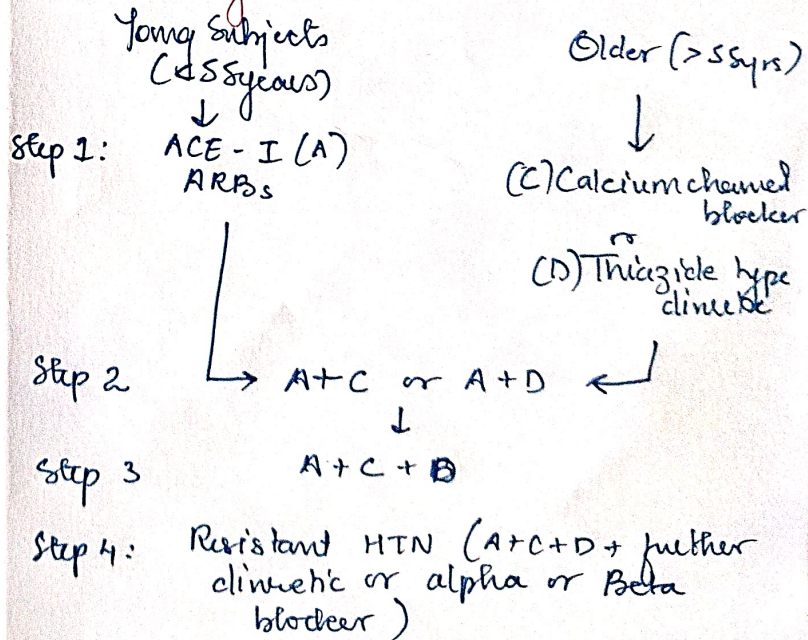 Young Subjects
(<55years)
Older (>55yrs)
↓
↓
Step 1: ACE-I (A)
ARBs
(C) Calcium channel
blocker
or
(D) Thiazide type
diuretic
Step 2 A+C or A+D
↓
Step 3 A+C+D
Step 4: Resistant HTN (A+C+D+ further
diuretic or alpha or Beta
blocker)